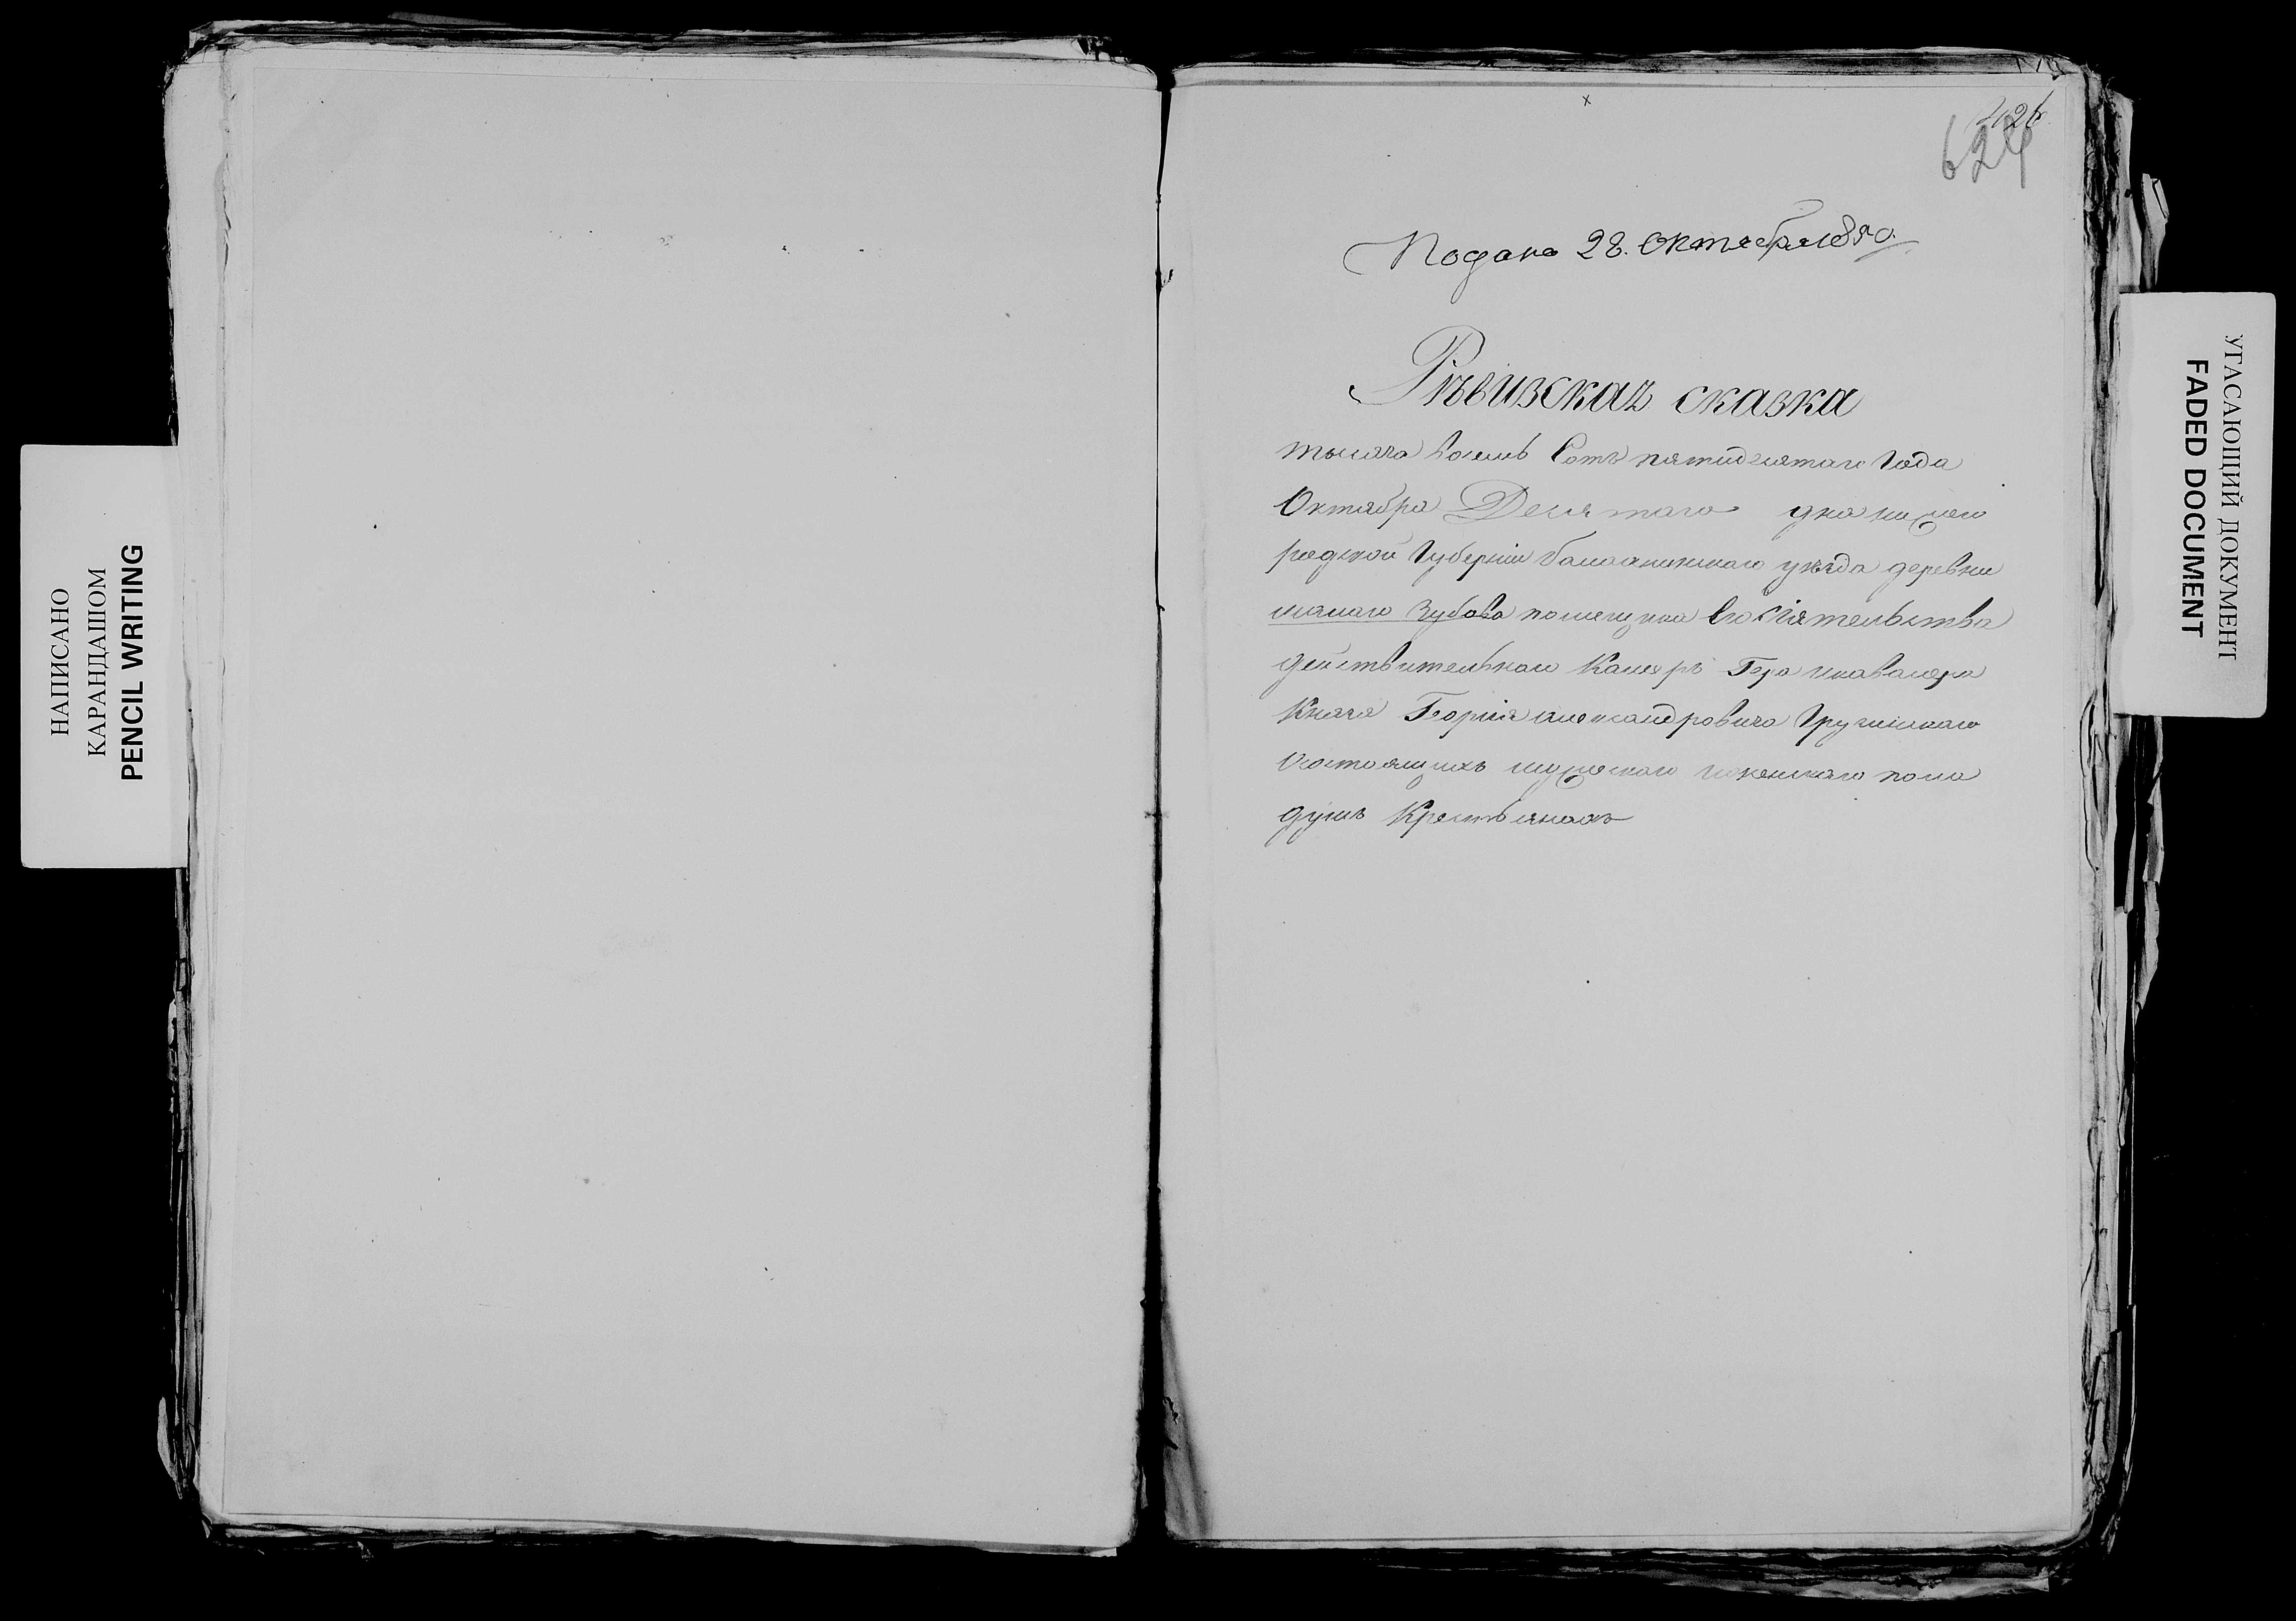 НАПИСАНО
КАРАНДАШОМ
PENCIL WRITING
426
624
Подана 28. Октября 1850.
Ревизская сказка
тысяча восемь Сотъ пятидесятаго Года
Октября Десятаго дна нижего
родской Губерніи балахнинскаго уѣзда деревни
малаго Зубова помещика Его Сіятельства
действительнаго Камеръ Гера икавалера
Князя Георгія александровича Грузинскаго
Осостоящихъ мужескаго иженскаго пола
душъ Крестьянахъ
УГАСАЮЩИЙ ДОКУМЕНТ
FADED DOCUMENT